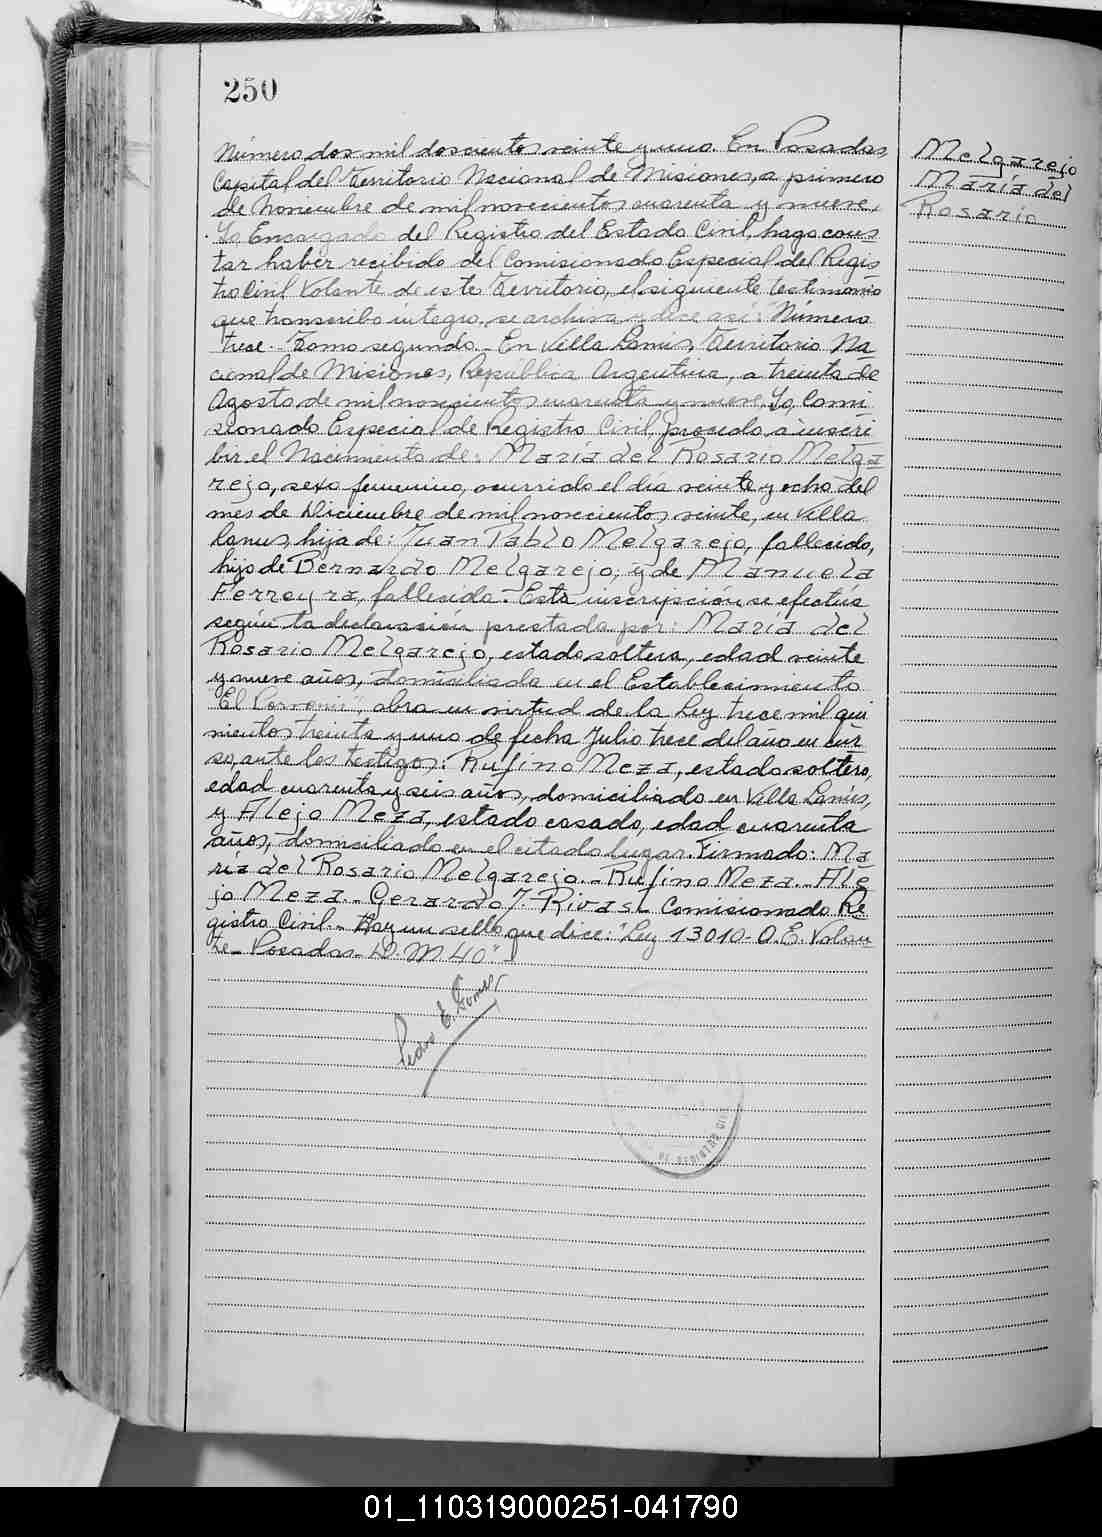 250
Número dos mil doscientos veinte y uno. En Posadas,
Capital del Territorio Nacional de Misiones, a primero
de Noviembre de mil novecientos cuarenta y nueve,
Yo Encargado del Registro del Estado Civil, hago cons-
tar haber recibido del Comisionado Especial del Regis-
tro Civil Volante de este Territorio, el siguiente testimonio
que transcribo integro, se archiva y dice así: "Número
trece.- Tomo segundo.- En Villa Lanus, Territorio Na-
cional de Misiones, República Argentina, a treinta de
Agosto de mil novecientos cuarenta y nueve, Yo, Comi-
sionado Especial de Registro Civil, procedo a inscri-
bir el Nacimiento de: María del Rosario Melga-
rejo, sexo femenino, ocurrido el día veinte y ocho del
mes de Diciembre de mil novecientos veinte, en Villa
Lanus, hija de: Juan Pablo Melgarejo, fallecido,
hijo de Bernardo Melgarejo; y de Manuela
Ferreyra, fallecida.- Esta inscripción se efectúa
según la declaración prestada por: María del
Rosario Melgarejo, estado soltera, edad veinte
y nueve años, domiciliada en el Establecimiento
"El Porvenir", obra en virtud de la Ley trece mil qui-
nientos treinta y uno de fecha Julio trece del año en cur-
so, ante los testigos: Rufino Meza, estado soltero,
edad cuarenta y seis años, domiciliado en Villa Lanús,
y Alejo Meza, estado casado, edad cuarenta
años, domiciliado en el citado lugar. Firmado: Ma-
ría del Rosario Melgarejo.- Rufino Meza.- Ale-
jo Meza.- Gerardo J. Rivas.- Comisionado Re-
gistro Civil.- Hay un sello que dice: "Ley 13010- O.E. Volan-
te- Posadas- D. M 40"
Pedro E. Gomez
REGISTRO CIVIL
Melgarejo
María del
Rosario
01_110319000251-041790